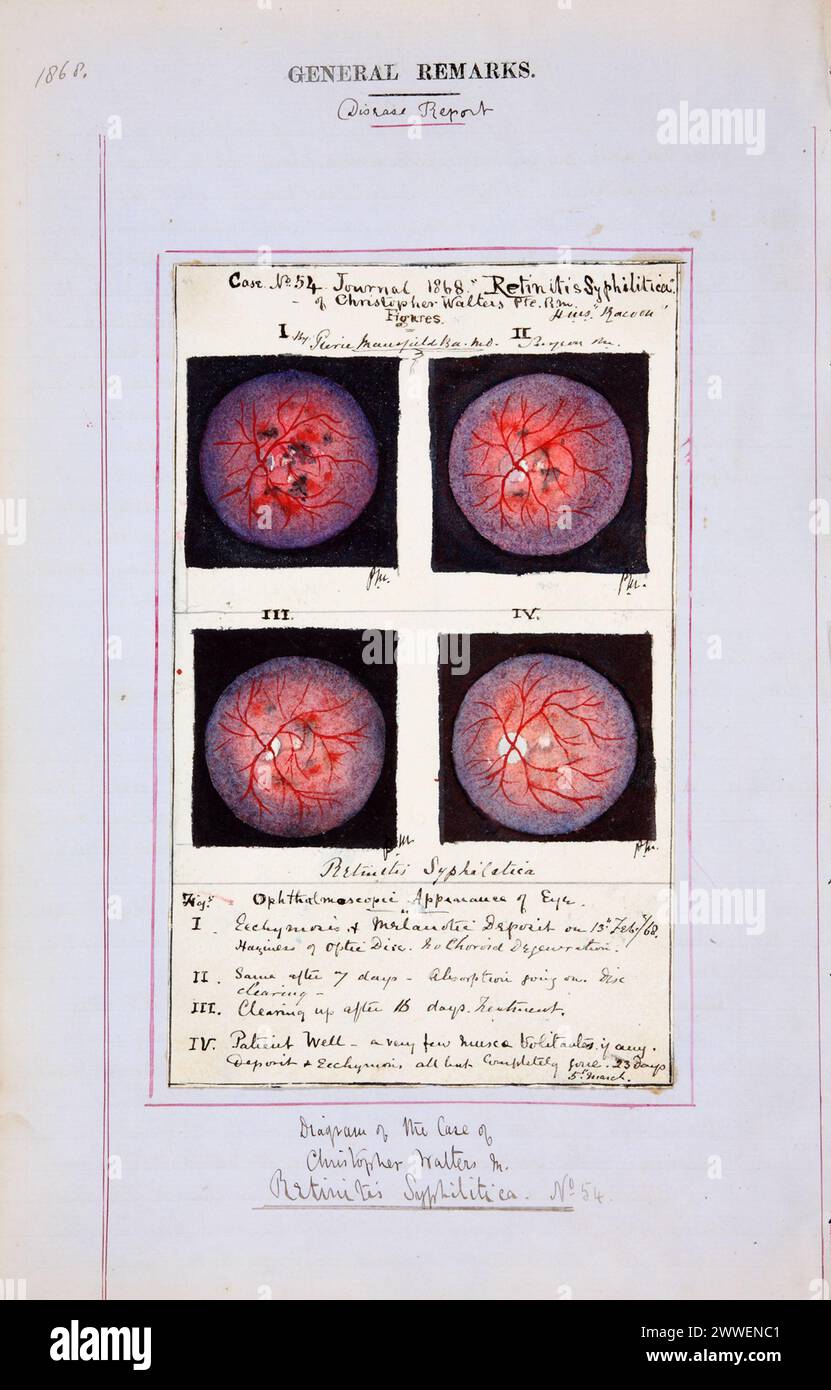 1868.
GENERAL REMARKS.
Disease Report
Case No. 54 Journal 1868. "Retinitis Syphilitica"
of Christopher Walters Pte. R.M.
H.M.S. "Racoon"
Figures.
I II
By Pierie Mansfield Ba. M.D. Surgeon
P.M.
P.M.
III. IV.
P.M.
P.M.
Retinitis Syphilitica
Figs. Ophthalmoscopic Appearance of Eye.
I. Ecchymosis & Melanotic Deposit on 13th Feby/68.
Haziness of Optic Disc. No Choroid Degeneration.
II. Same after 7 days - Absorption going on. Disc
clearing -
III. Clearing up after 16 days. Treatment.
IV. Patient Well - a very few musca volitantes, if any.
Deposit & Ecchymosis all but completely gone. 23 days
5th March.
Diagram of the Case of
Christopher Walters
Retinitis Syphilitica. No 54.
alamy
alamy
Image ID: 2WWENC1
www.alamy.com